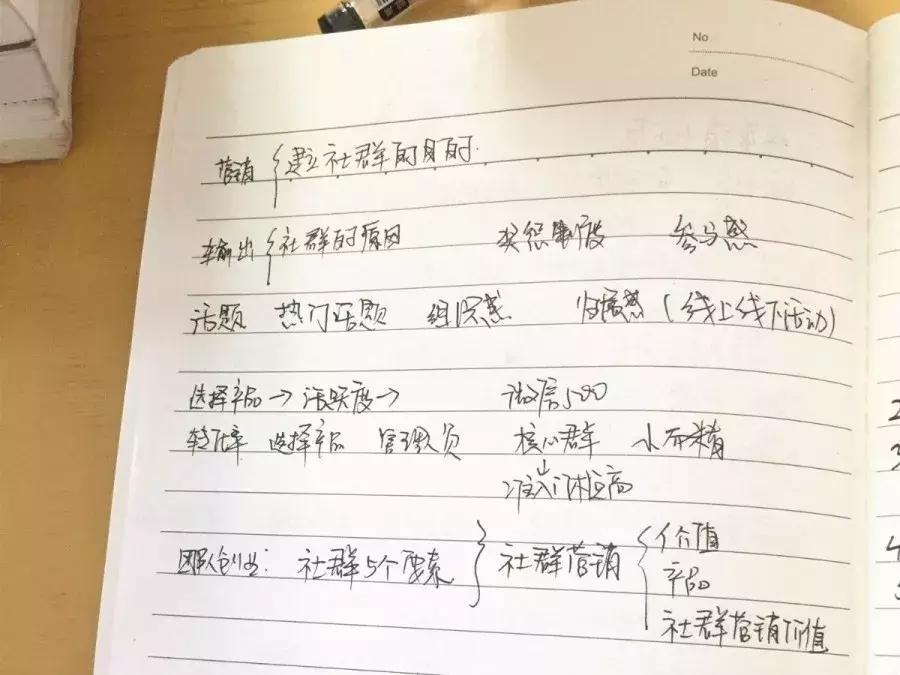 No
Date
营销 { 建立社群的目的.
输出 { 社群的原因 奖惩制度 参与感
话题 热门话题 组织感 归属感 (线上线下活动)
选择产品 → 活跃度 → 微信500
转化率 选择产品 管理人员 核心群 小而精
↓
准入门槛高
团队创业: 社群5个要素 } 社群营销 { 价值
产品
社群营销价值
2
3
4
5